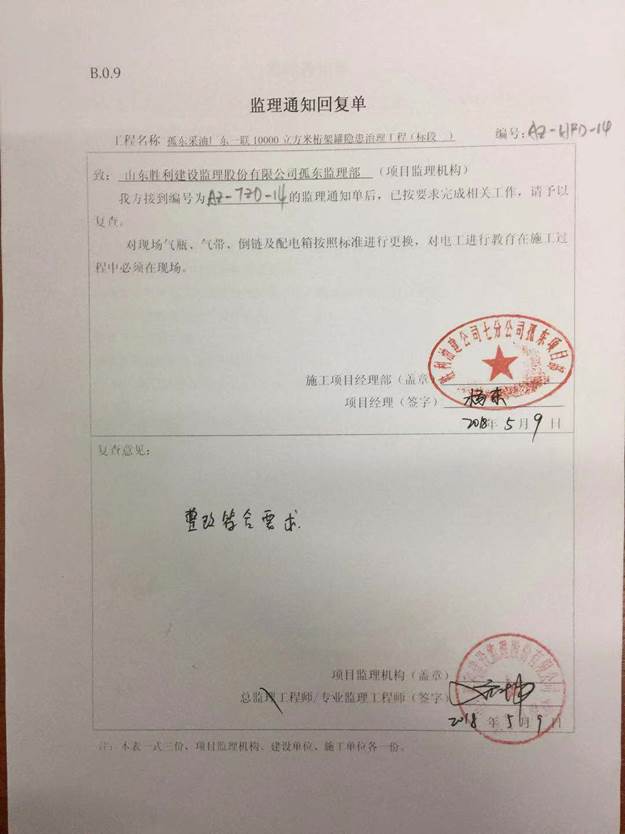 B.0.9
监理通知回复单
工程名称 孤东采油厂东一联10000立方米桁架罐隐患治理工程(标段 )
编号:AZ-HFD-14
致: 山东胜利建设监理股份有限公司孤东监理部 (项目监理机构)
我方接到编号为AZ-TZD-14的监理通知单后,已按要求完成相关工作,请予以
复查。
对现场气瓶、气带、倒链及配电箱按照标准进行更换,对电工进行教育在施工过
程中必须在现场。
胜利油建公司七分公司孤东项目部
施工项目经理部(盖章)
项目经理(签字)
2018年5月9日
复查意见:
整改符合要求.
项目监理机构(盖章)
总监理工程师/专业监理工程师(签字)
2018年5月9日
注:本表一式三份,项目监理机构、建设单位、施工单位各一份。